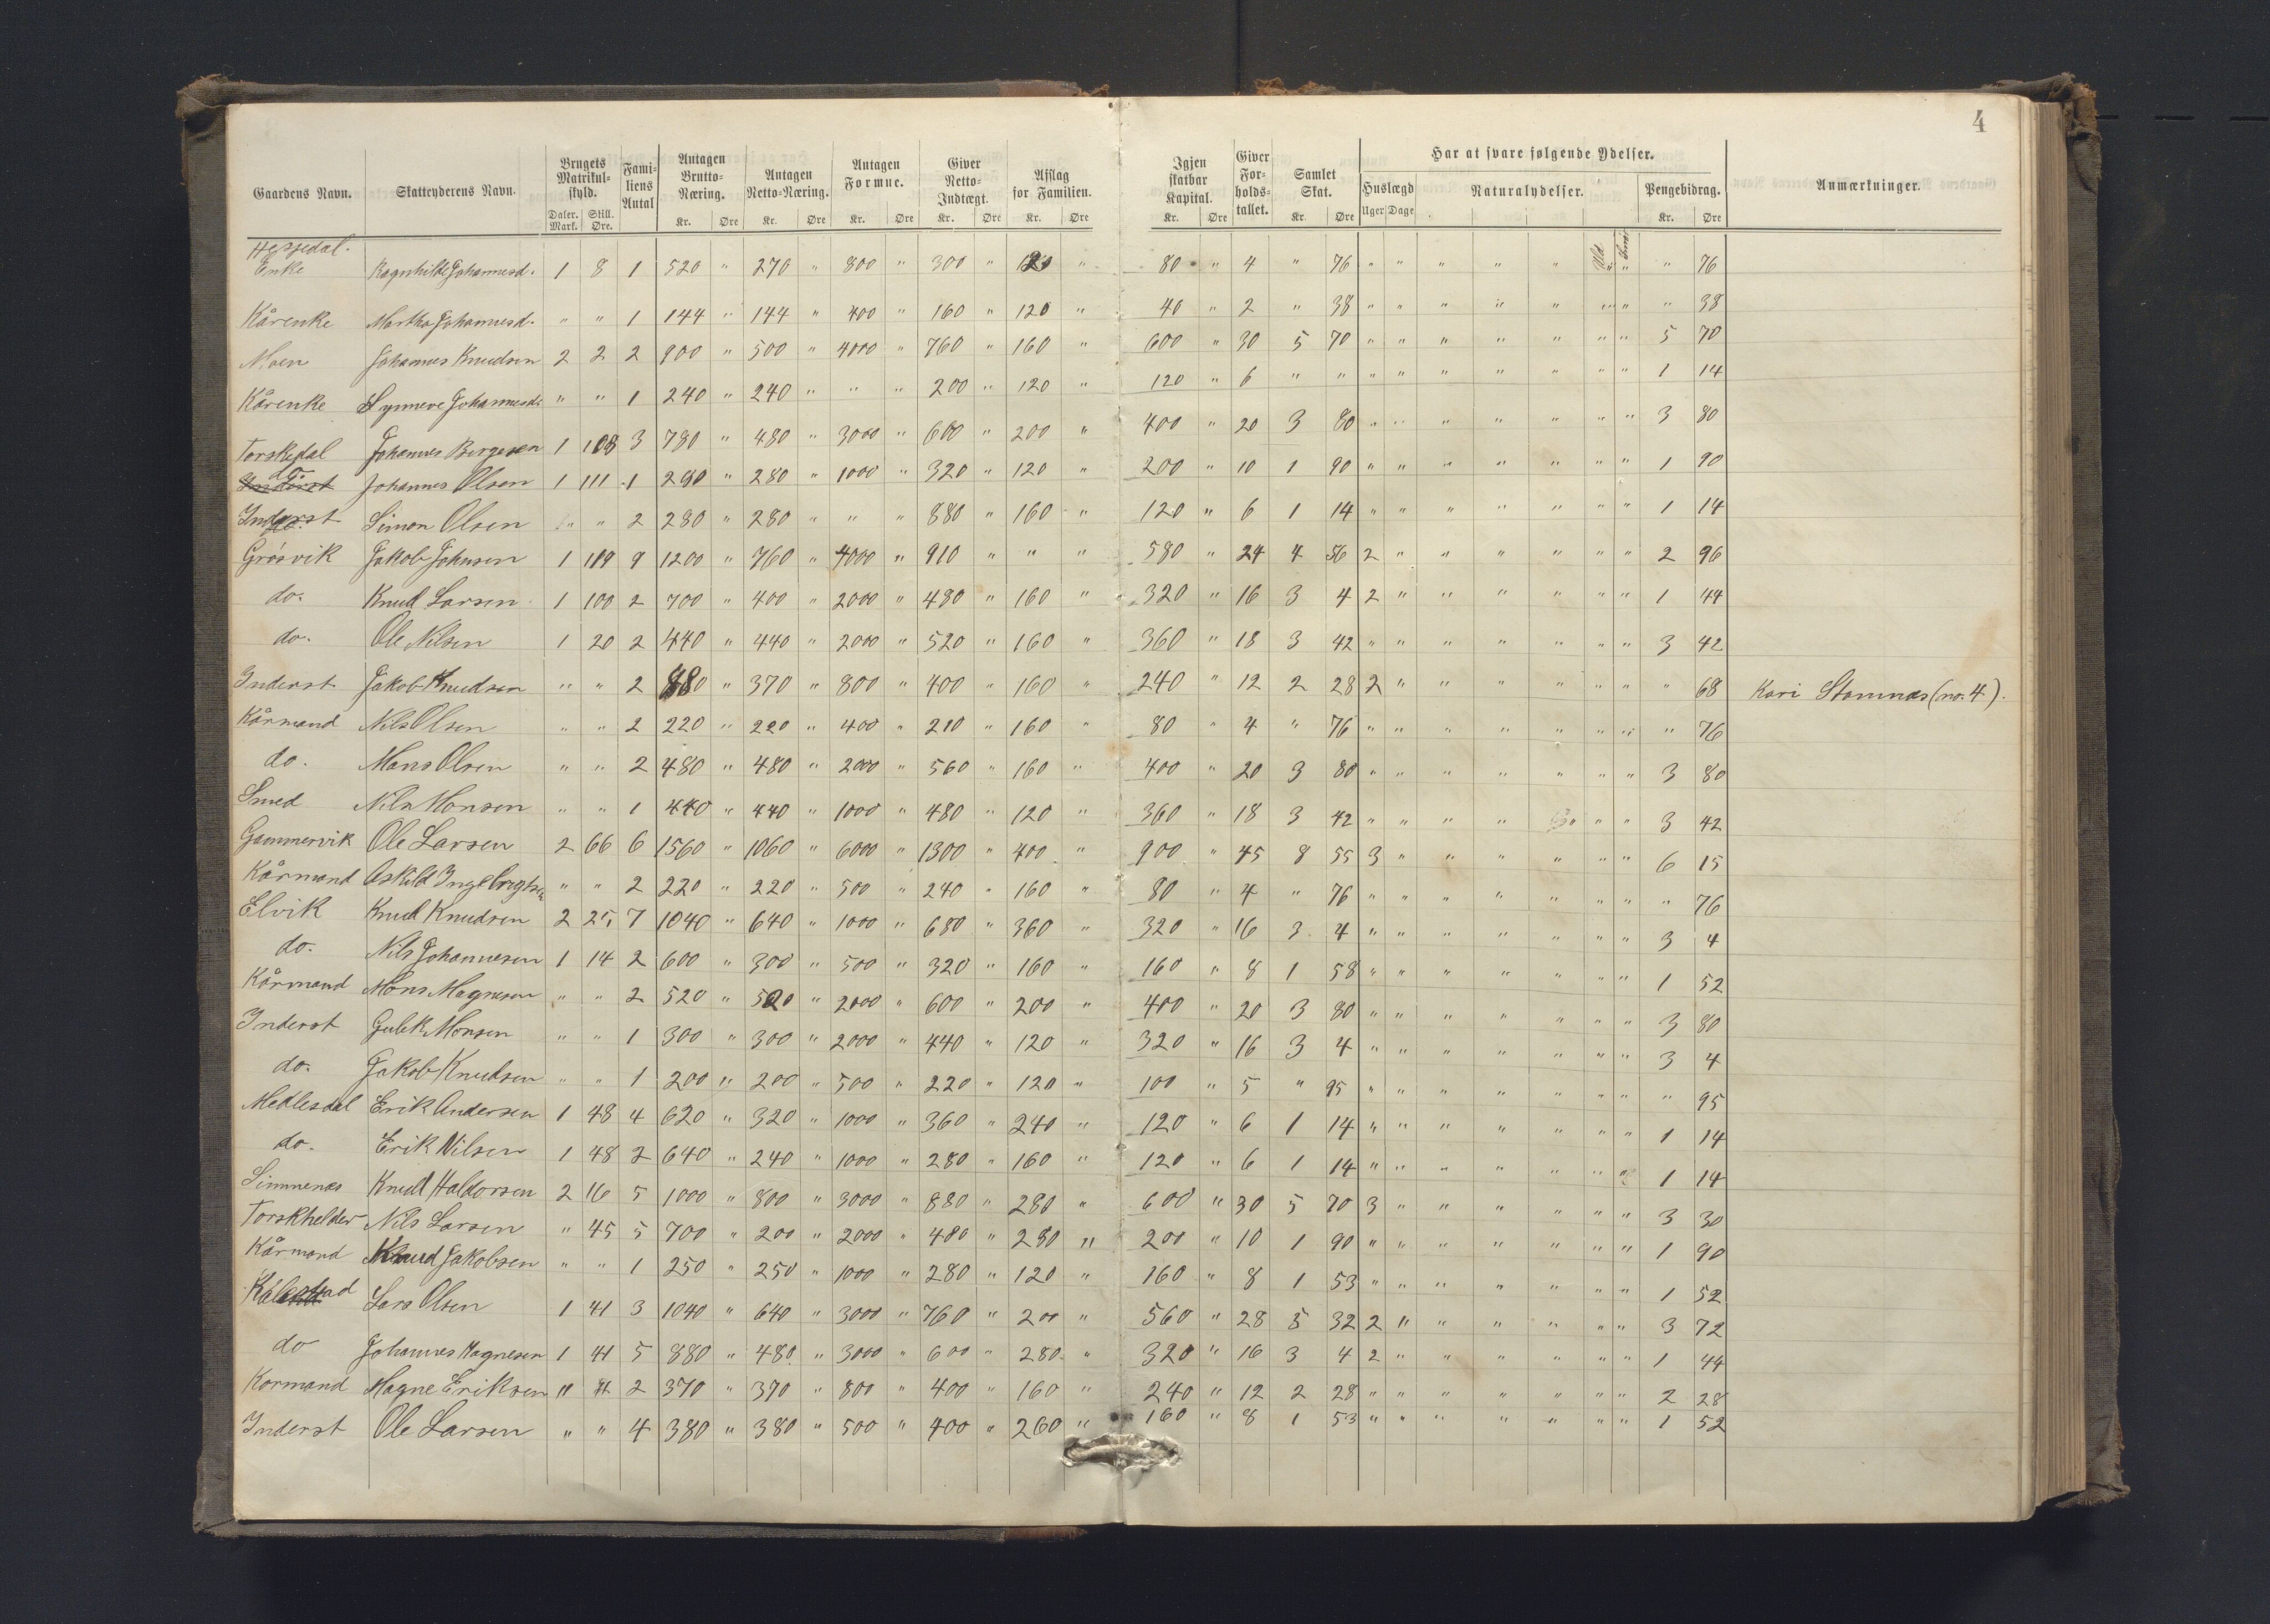 4
Gaardens Navn. Skatteyderens Navn. Brugets Matrikul-skyld. Fami-liens Antal Antagen Brutto-Næring. Antagen Netto-Næring. Antagen Formue. Giver Netto-Indtægt. Afslag for Familien. Igjen skatbar Kapital. Giver For-holds-tallet. Samlet Skat. Har at svare følgende Ydelser. Anmærkninger.
Huslægd Naturalydelser. Pengebidrag.
Daler. Mark. Skill. Øre. Kr. Øre Kr. Øre Kr. Øre Kr. Øre Kr. Øre Kr. Øre Kr. Øre Uger Dage Kr. Øre
Hesjedal.
Enke Ragnhilde Johannesd. 1 8 1 520 " 270 " 800 " 300 " 120 " 80 " 4 " 76 " " " " " " " " 76
Kårenke Martha Johannesd. " " 1 144 " 144 " 400 " 160 " 120 " 40 " 2 " 38 " " " " " " " " 38
Moen Johannes Knudsen 2 2 2 900 " 500 " 4000 " 760 " 160 " 600 " 30 5 70 " " " " " " " 5 70
Kårenke Synneve Johannesd. " " 1 240 " 240 " " " 200 " 120 " 120 " 6 " " " " " " " " " 1 14
Torskedal Johannes Børgesen 1 108 3 780 " 480 " 3000 " 600 " 200 " 400 " 20 3 80 " " " " " " " 3 80
do Johannes Olsen 1 111 1 290 " 280 " 1000 " 320 " 120 " 200 " 10 1 90 " " " " " " " 1 90
Inderst Simon Olsen " " 2 280 " 280 " " " 880 " 160 " 120 " 6 1 14 " " " " " " " 1 14
Grøsvik Jakob Johnsen 1 119 9 1200 " 760 " 4000 " 910 " " " 580 " 24 4 56 2 " " " " " " 2 96
do. Knud Larsen 1 100 2 700 " 400 " 2000 " 480 " 160 " 320 " 16 3 4 2 " " " " " " 1 44
do. Ole Nilsen 1 20 2 440 " 440 " 2000 " 520 " 160 " 360 " 18 3 42 " " " " " " " 3 42
Inderst Jakob Knudsen " " 2 " 370 " 800 " 400 " 160 " 240 " 12 2 28 2 " " " " " " " 68 Kari Stamnæs (no. 4).
Kårmand Nils Olsen " " 2 220 " 220 " 400 " 210 " 160 " 80 " 4 " 76 " " " " " " " " 76
do. Mons Olsen " " 2 480 " 480 " 2000 " 560 " 160 " 400 " 20 3 80 " " " " " " " 3 80
Smed Nils Monsen " " 1 440 " 440 " 1000 " 480 " 120 " 360 " 18 3 42 " " " " " " " 3 42
Gammervik Ole Larsen 2 66 6 1560 " 1060 " 6000 " 1300 " 400 " 900 " 45 8 55 3 " " " " " " 6 15
Kårmand Askild Ingebrigtsen " " 2 220 " 220 " 500 " 240 " 160 " 80 " 4 " 76 " " " " " " " " 76
Elvik Knud Knudsen 2 25 7 1040 " 640 " 1000 " 680 " 360 " 320 " 16 3 4 " " " " " " " 3 4
do. Nils Johannesen 1 14 2 600 " 300 " 500 " 320 " 160 " 160 " 8 1 58 " " " " " " " 1 52
Kårmand Mons Magnesen " " 2 520 " 520 " 2000 " 600 " 200 " 400 " 20 3 80 " " " " " " " 3 80
Inderst Gulek Monsen " " 1 300 " 300 " 2000 " 440 " 120 " 320 " 16 3 4 " " " " " " " 3 4
do. Jakob Knudsen " " 1 200 " 200 " 500 " 220 " 120 " 100 " 5 " 95 " " " " " " " " 95
Medlesdal Erik Andersen 1 48 4 620 " 320 " 1000 " 360 " 240 " 120 " 6 1 14 " " " " " " " 1 14
do. Erik Nilsen 1 48 2 640 " 240 " 1000 " 280 " 160 " 120 " 6 1 14 " " " " " " " 1 14
Simmenes Knud Haldorsen 2 16 5 1000 " 800 " 3000 " 880 " 280 " 600 " 30 5 70 3 " " " " " " 3 30
Torskhelder Nils Larsen " 45 5 700 " 200 " 2000 " 480 " 280 " 200 " 10 1 90 " " " " " " " 1 90
Kårmand Knud Jakobsen " " 1 250 " 250 " 1000 " 280 " 120 " 160 " 8 1 53 " " " " " " " 1 52
Kålestad Lars Olsen 1 41 3 1040 " 640 " 3000 " 760 " 200 " 560 " 28 5 32 2 " " " " " " 3 72
do Johannes Magnesen 1 41 5 880 " 480 " 3000 " 600 " 280 " 320 " 16 3 4 2 " " " " " " 1 44
Kormand Magne Eriksen " " 2 370 " 370 " 800 " 400 " 160 " 240 " 12 2 28 " " " " " " " 2 28
Inderst Ole Larsen " " 4 380 " 380 " 500 " 400 " 260 " 160 " 8 1 53 " " " " " " " 1 52